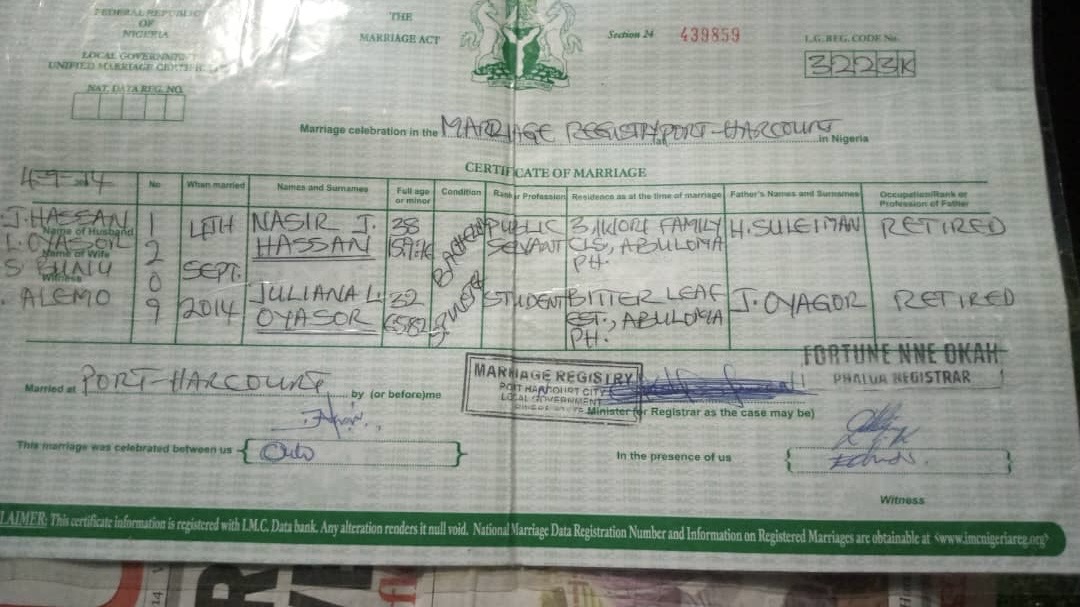 FEDERAL REPUBLIC
OF
NIGERIA
LOCAL GOVERNMENT
UNIFIED MARRIAGE
NAT. DATA REG. NO.
THE
MARRIAGE ACT
Section 24 439859
L.G. REG. CODE No.
3223K
Marriage celebration in the MARRIAGE REGISTRY, PORT-HARCOURT in Nigeria
CERTIFICATE OF MARRIAGE
4-9-14 No When married Names and Surnames Full age or minor Condition Rank or Profession Residence as at the time of marriage Father's Names and Surnames Occupation/Rank or Profession of Father
J. HASSAN 1 4TH NASIR J. 38 BACHELOR PUBLIC 3, IKORI FAMILY H. SULEIMAN RETIRED
Name of Husband
L. OYASOR 2 HASSAN SERVANT CLS, ABULOMA
Name of Wife
PH.
Witness
0 SEPT.
ALEMO 9 2014 JULIANA L. 32 STUDENT BITTER LEAF J. OYAGOR RETIRED
OYASOR EST., ABULOMA
PH.
FORTUNE NNE OKAH
PHALGA REGISTRAR
MARRIAGE REGISTRY
PORT HARCOURT CITY
LOCAL GOVERNMENT
Married at PORT-HARCOURT by (or before)me
Minister (or Registrar as the case may be)
This marriage was celebrated between us
In the presence of us
Witness
LAIMER: This certificate information is registered with I.M.C. Data bank. Any alteration renders it null void. National Marriage Data Registration Number and Information on Registered Marriages are obtainable at <www.imcnigeriareg.org>
14